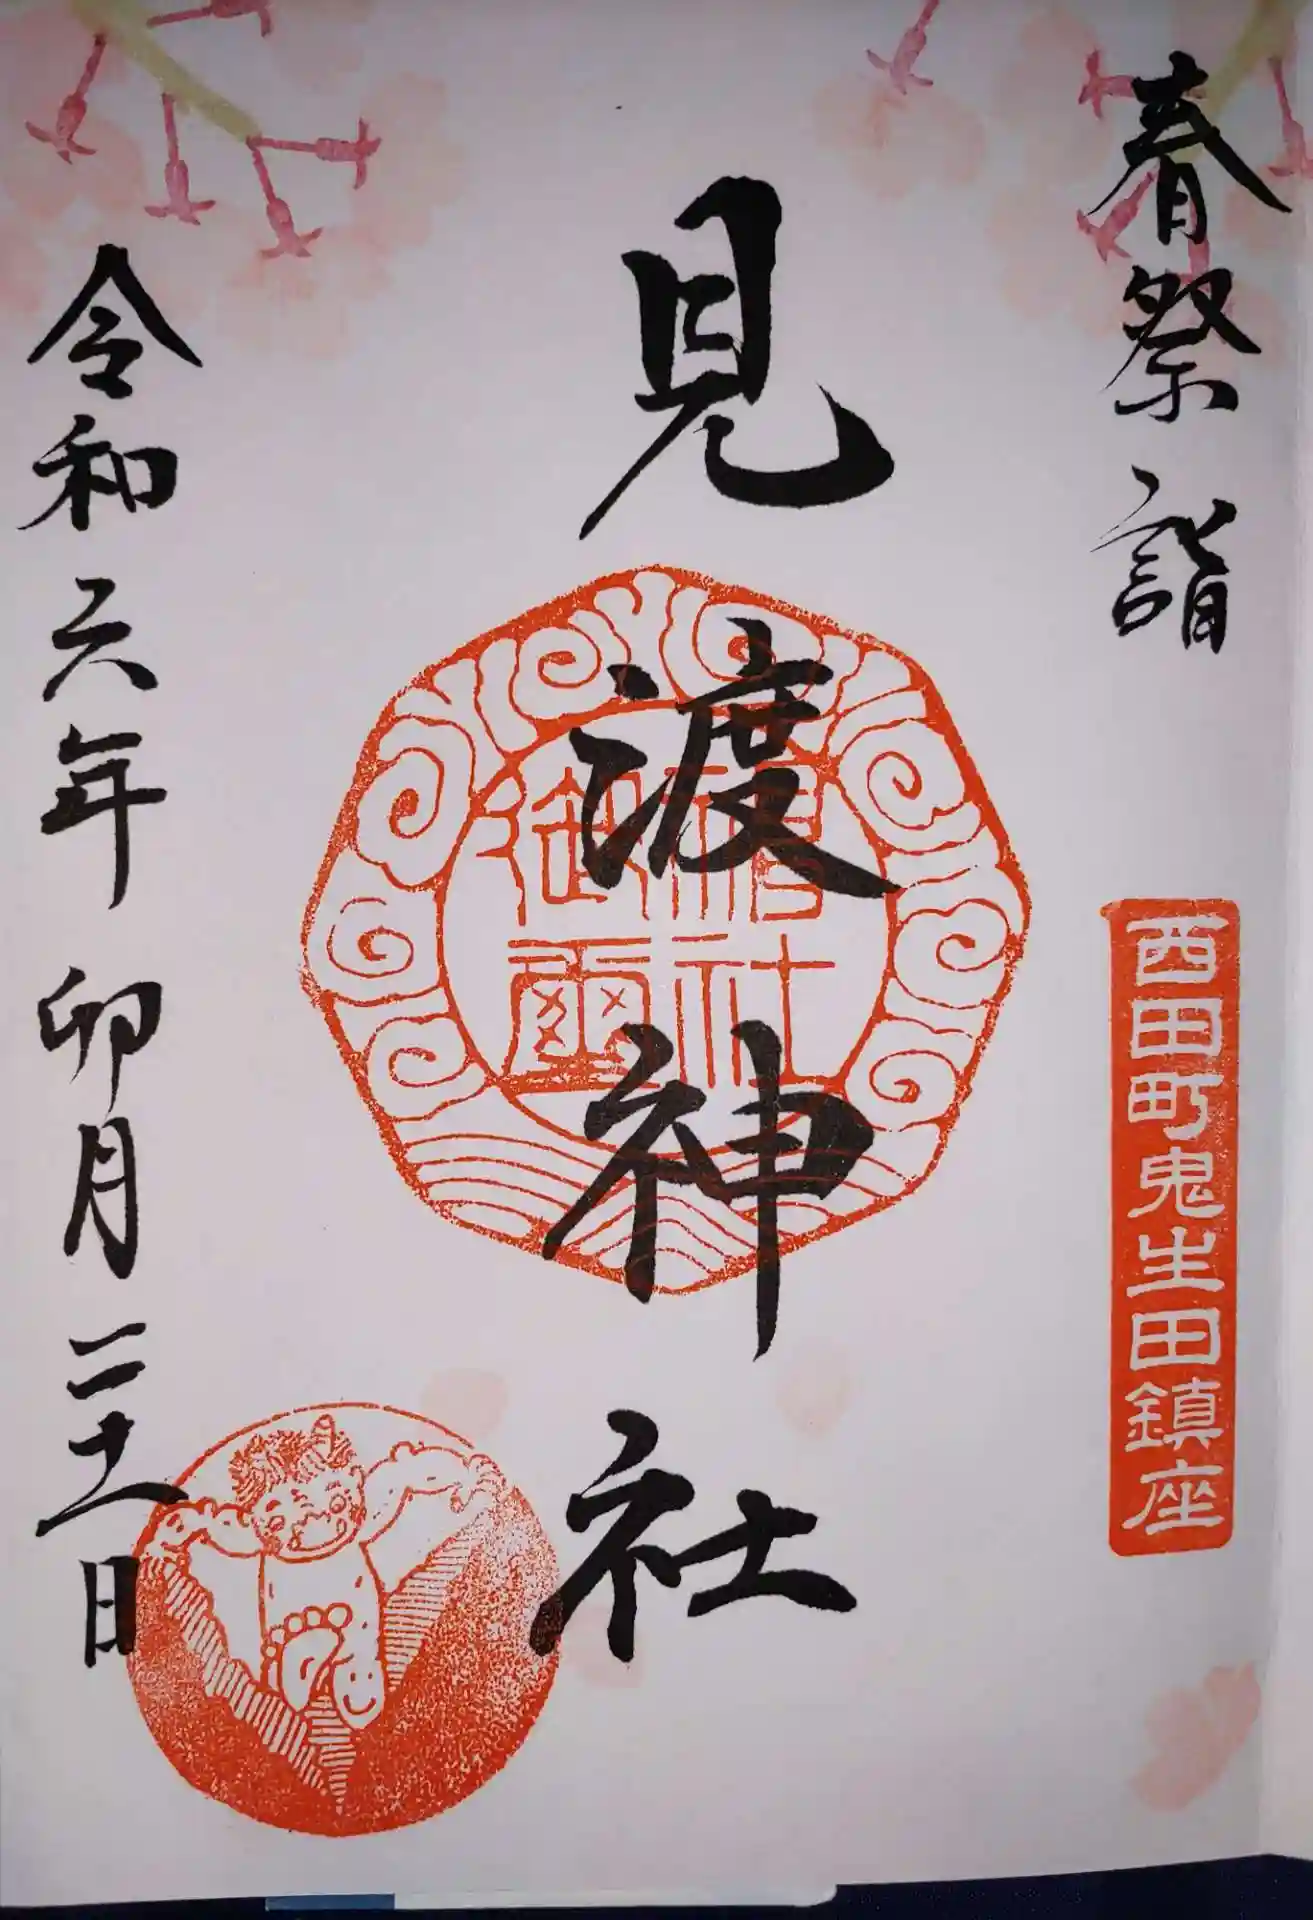 春祭詣
西田町鬼生田鎮座
見渡神社
社
御璽
令和六年 卯月二十一日